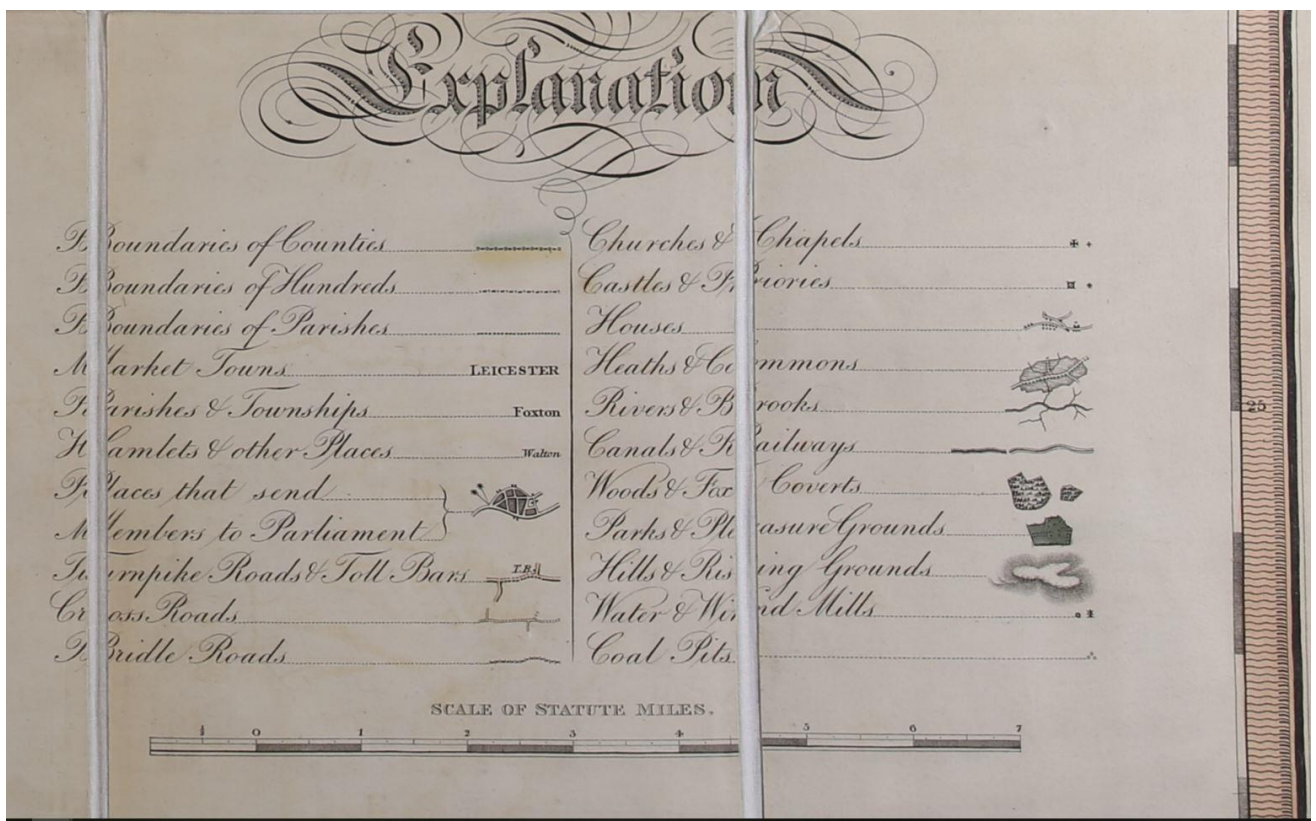 Explanation
Boundaries of Counties
Boundaries of Hundreds
Boundaries of Parishes
Market Towns LEICESTER
Parishes & Townships Foxton
Hamlets & other Places Walton
Places that send
Members to Parliament
Turnpike Roads & Toll Bars T.B.
Cross Roads
Bridle Roads
Churches & Chapels
Castles & Priories
Houses
Heaths & Commons
Rivers & Brooks
Canals & Railways
Woods & Fox Coverts
Parks & Pleasure Grounds
Hills & Rising Grounds
Water & Wind Mills
Coal Pits
25
SCALE OF STATUTE MILES.
1 0 1 2 3 4 5 6 7